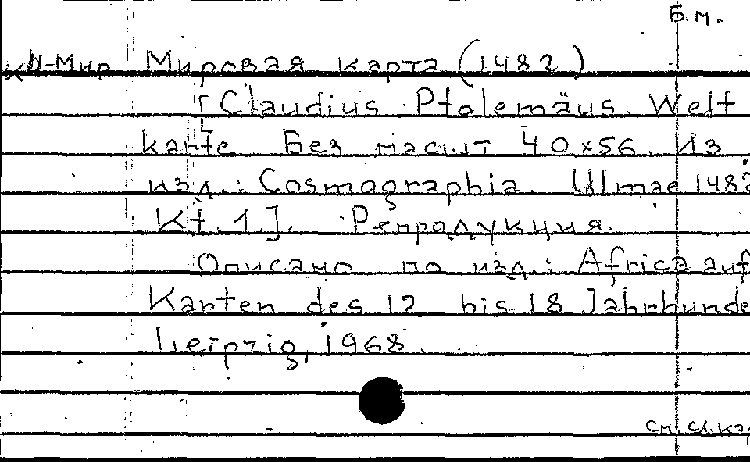 Б.м.
КN-Мир Мировая карта (1482)
[Claudius Ptolemäus Welt
karte. Без масшт 40×56. Из
изд.: Cosmographia. Ulmae 1482
Kt. 1]. Репродукция.
Описано по изд.: Africa auf
Karten des 12 bis 18 Jahrhunde
Leipzig, 1968.
См.